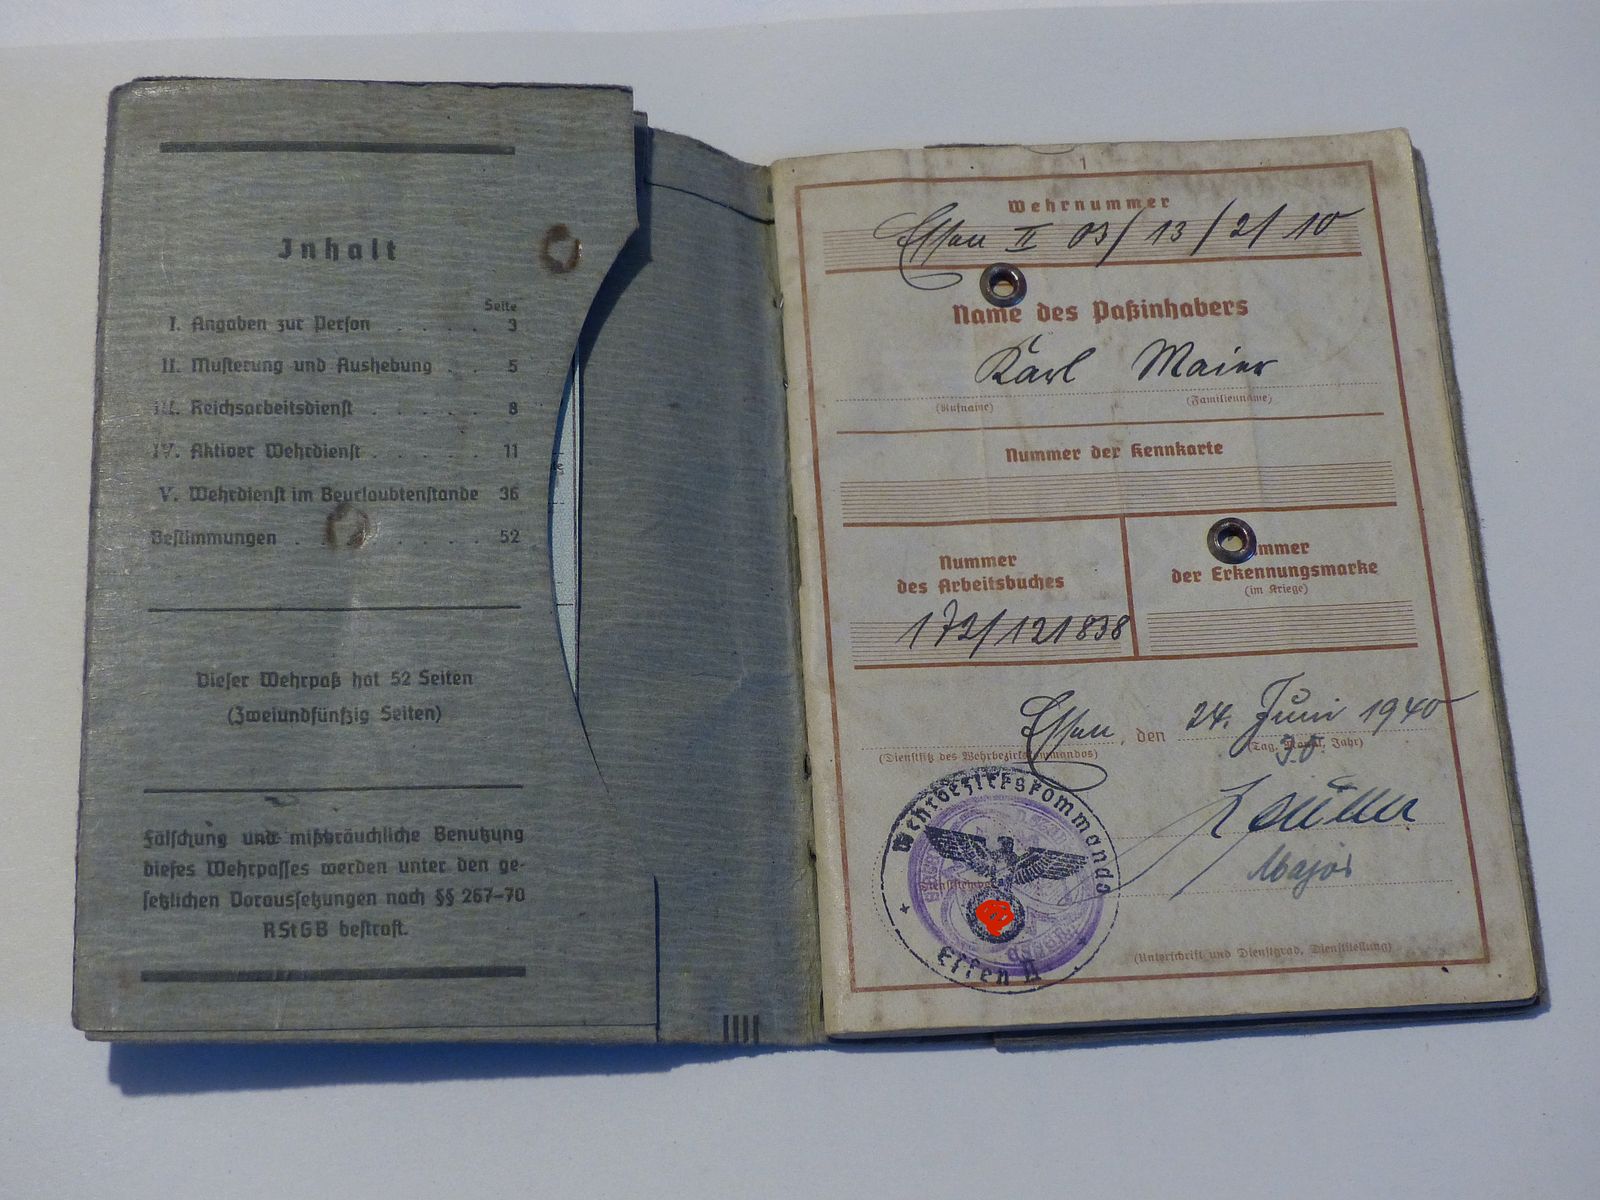 Inhalt
Seite
I. Angaben zur Person . . . . . 3
II. Musterung und Aushebung . . 5
III. Reichsarbeitsdienst . . . . . 8
IV. Aktiver Wehrdienst . . . . . 11
V. Wehrdienst im Beurlaubtenstande 36
Bestimmungen . . . . . 52
Dieser Wehrpaß hat 52 Seiten
(Zweiundfünfzig Seiten)
Fälschung und mißbräuchliche Benutzung
dieses Wehrpasses werden unter den ge-
setzlichen Voraussetzungen nach §§ 267-70
RStGB bestraft.
1
Wehrnummer
Essen II 03/13/2/10
Name des Paßinhabers
Karl Maier
(Rufname) (Familienname)
Nummer der Kennkarte
Nummer
des Arbeitsbuches
172/121838
Nummer
der Erkennungsmarke
(im Kriege)
Essen, den 24. Juni 1940
(Dienstsitz des Wehrbezirkskommandos) (Tag, Monat, Jahr)
Wehrbezirkskommando
Essen II
Major
(Unterschrift und Dienstgrad, Dienststellung)